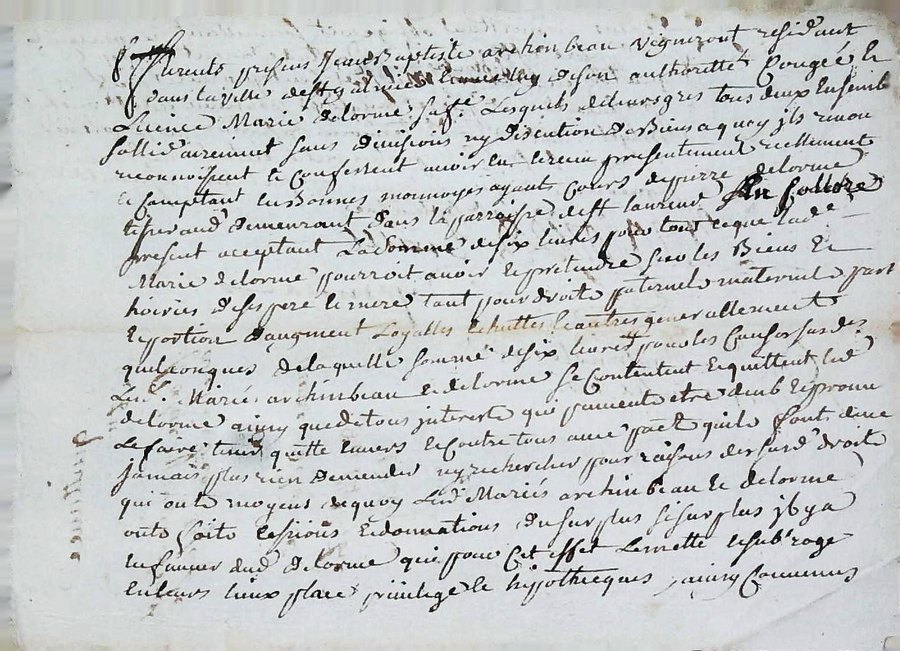 furent presens Jean Baptiste archinbeau vigneront residant
dans la ville de st galmier lequel de son authoritté Congée et
Licence Marie delorme sa fe. Lesquels de leurs grés tous deux Ensemb
sollidairement sans divisions ny discution de Biens a quoy ils renon
reconnoissent et Confessent avoir eu et receu presentement reellement
et Comptant en Bonnes monnoyes ayants Cours de pierre delorme
tisserand demeurant dans la parroisse de st laurend En Sollore
present acceptant La somme de six livres pour tout ce que lade
Marie delorme pourroit avoir et pretendre sur les Biens Et
hoiries de ses pere et mere tant pour droits paternel maternel part
et portion daugment Legalles echuttes et autres generallement
quelconques de laquelle somme de six livres pour les Causes susdes
Lesd. Mariés archinbeau Et delorme se Contentent Et quittent led
delorme ainsy que de tous interests qui peuvent etre deub Et promm
Le faire tenir quitte Envers et Contre tous avec pact quils font de ne
Jamais plus rien demender ny rechercher pour raisons desursd droits
qui outs moyens de quoy Lesd Mariés archinbeau Et delorme
onts faits cessions Et donnations du surplus si surplus il y a
En faveur dud delorme qui pour Cet effet Lemette et subroge
En leurs lieux place privilege et hipothecques, ainsy Convenus